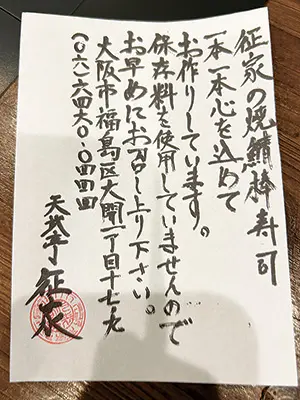 征家の焼鯖棒寿司
一本一本心を込めて
お作りしています。
保存料を使用していませんので
お早めにお召し上り下さい。
大阪市福島区大開一丁目十七ノ九
(〇六)六四六〇・〇四四四
征家